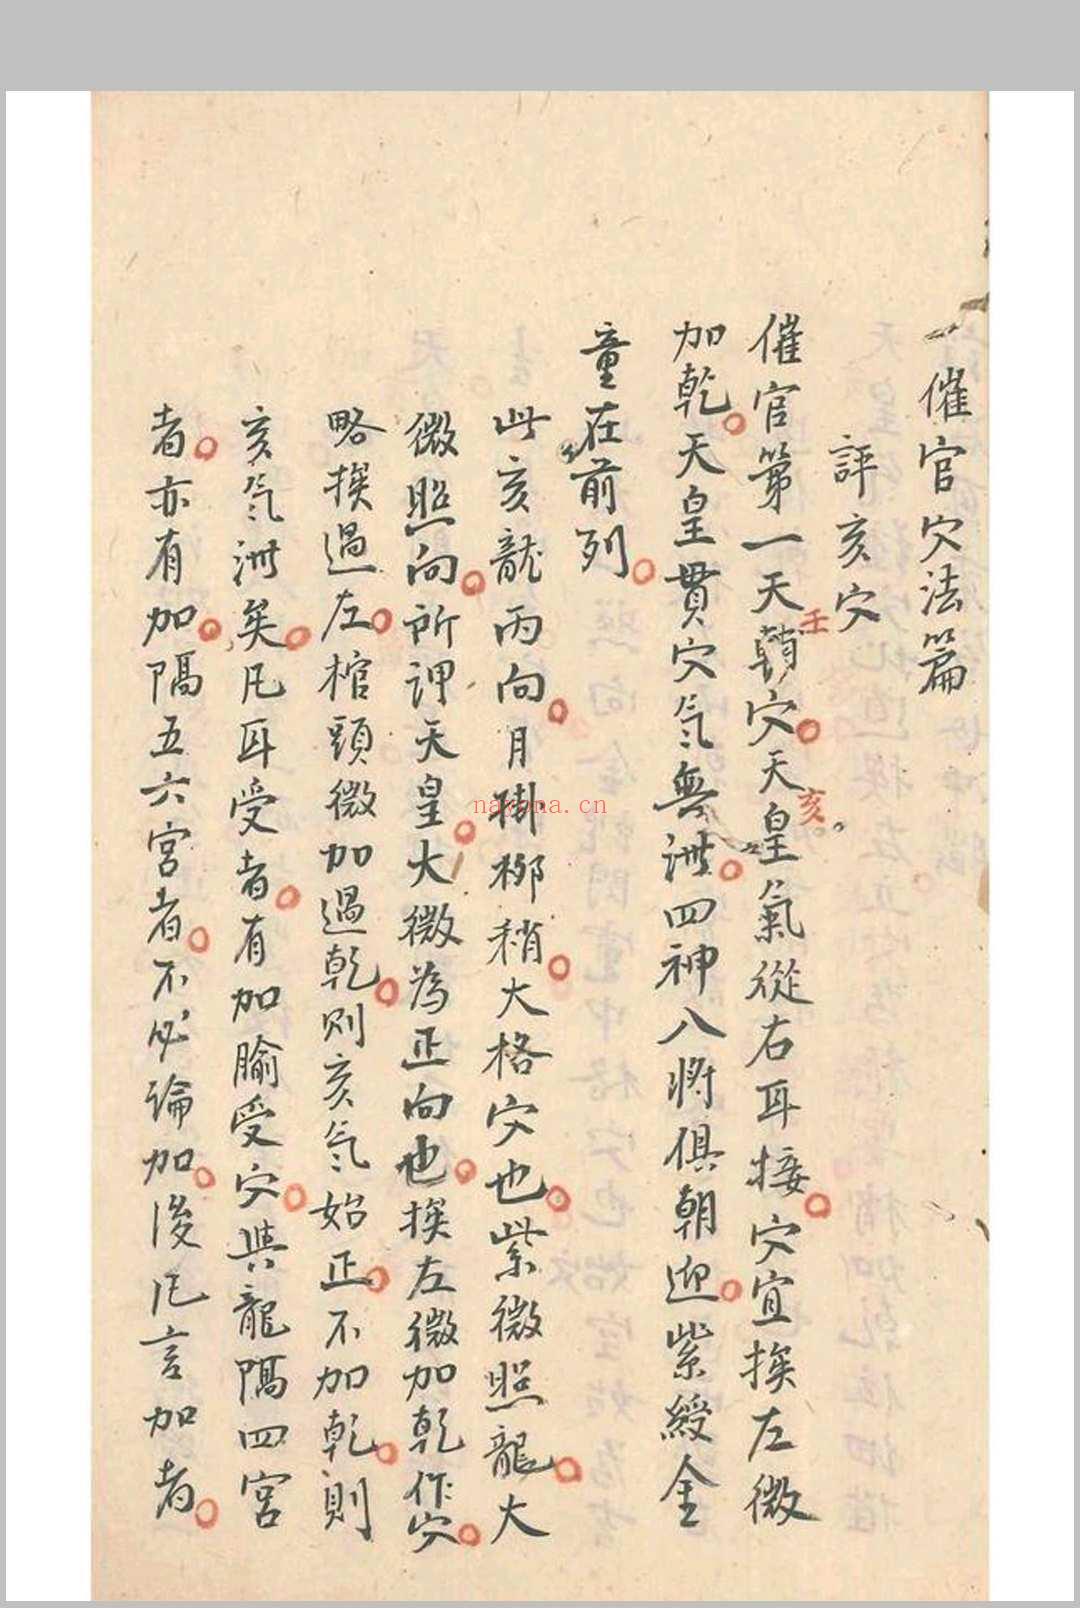 催官穴法篇
評亥穴
催官第一天鞘穴天皇氣從右耳接穴宜挨左微
壬
亥
加乾天皇貫穴气無泄四神八將俱朝迎紫綬金
童在前列
此亥龍丙向月掛栁稍大格穴也紫微照龍大
微照向所谓天皇大微為正向也挨左微加乾作穴
略挨過左棺頭微加過乾則亥气始正不加乾則
亥气泄矣凡耳受者有加腧受穴與龍隔四宮
者亦有加隔五六宮者不必論加後凡言加者
nayona.cn